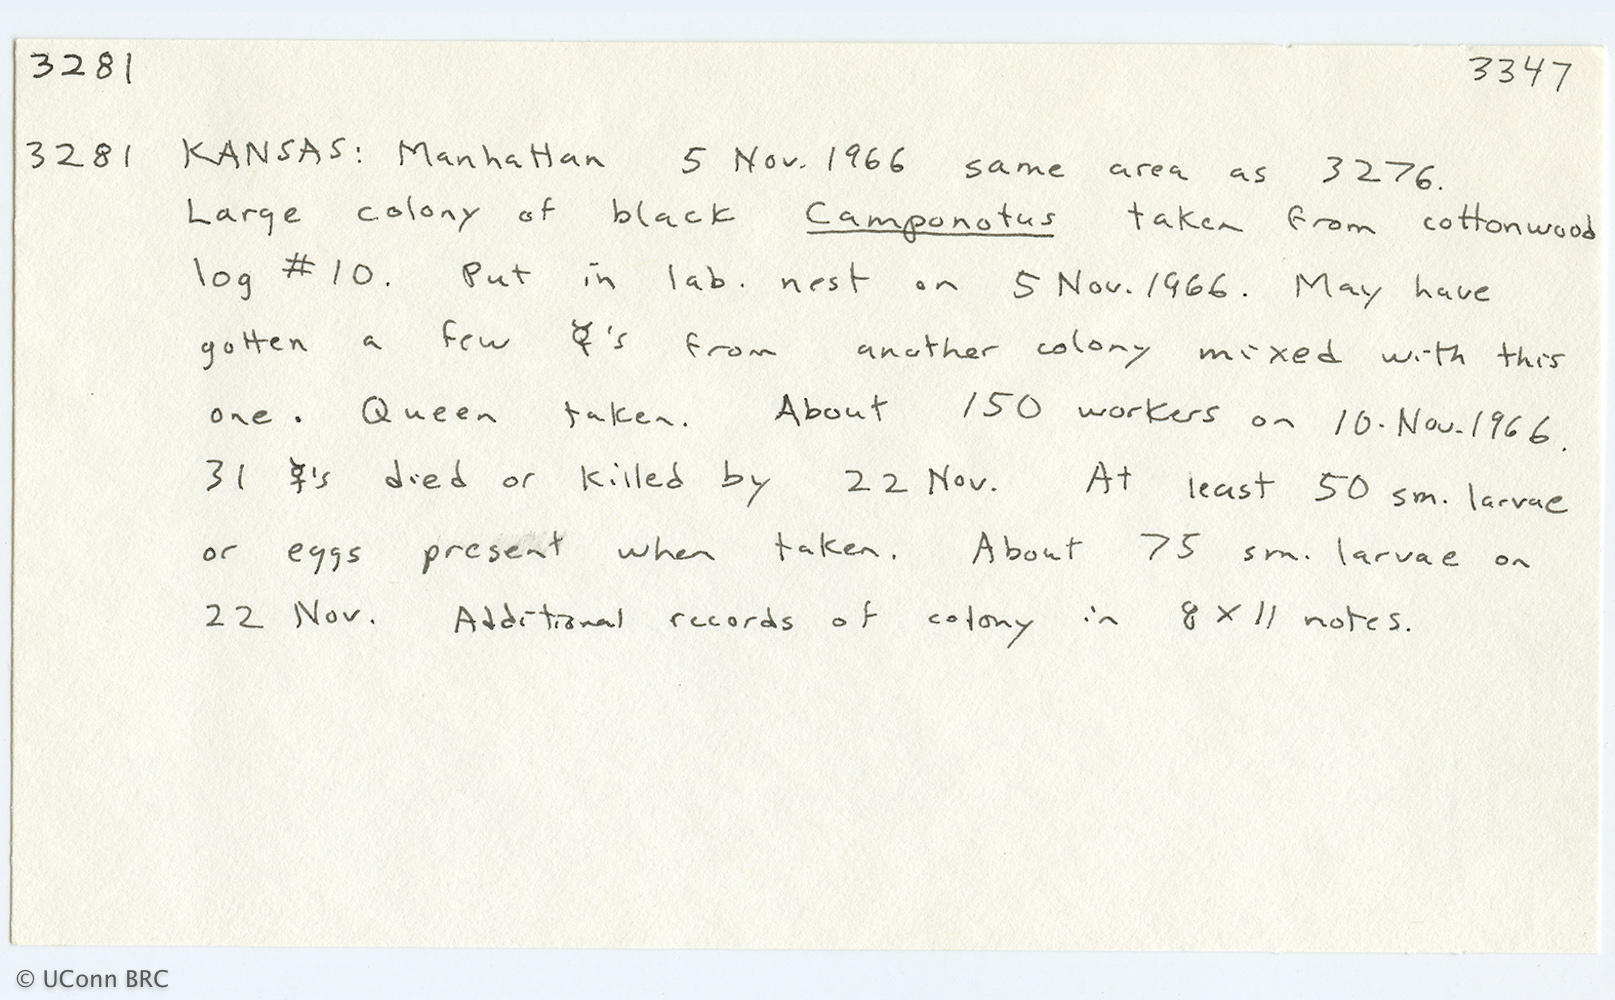 3281 3347
3281 KANSAS: Manhattan 5 Nov. 1966 same area as 3276.
Large colony of black Camponotus taken from cottonwood
log #10. Put in lab. nest on 5 Nov. 1966. May have
gotten a few ☿'s from another colony mixed with this
one. Queen taken. About 150 workers on 10. Nov. 1966.
31 ☿'s died or killed by 22 Nov. At least 50 sm. larvae
or eggs present when taken. About 75 sm. larvae on
22 Nov. Additional records of colony in 8 x 11 notes.
© UConn BRC